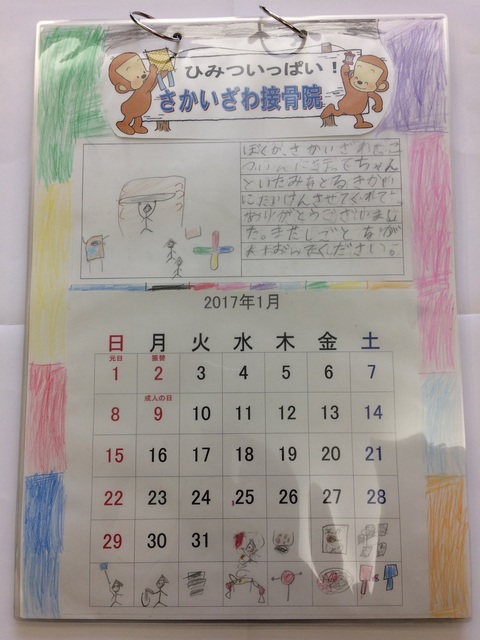 ひみついっぱい！
さかいざわ接骨院
ぼくが、さかいざわせっこ
といたみをとるきかい
にたいけんさせてくれて、
ありがとうございまし
た。またしごとをがん
2017年1月
日 月 火 水 木 金 土
元日 振替
1 2 3 4 5 6 7
成人の日
8 9 10 11 12 13 14
15 16 17 18 19 20 21
22 23 24 25 26 27 28
29 30 31